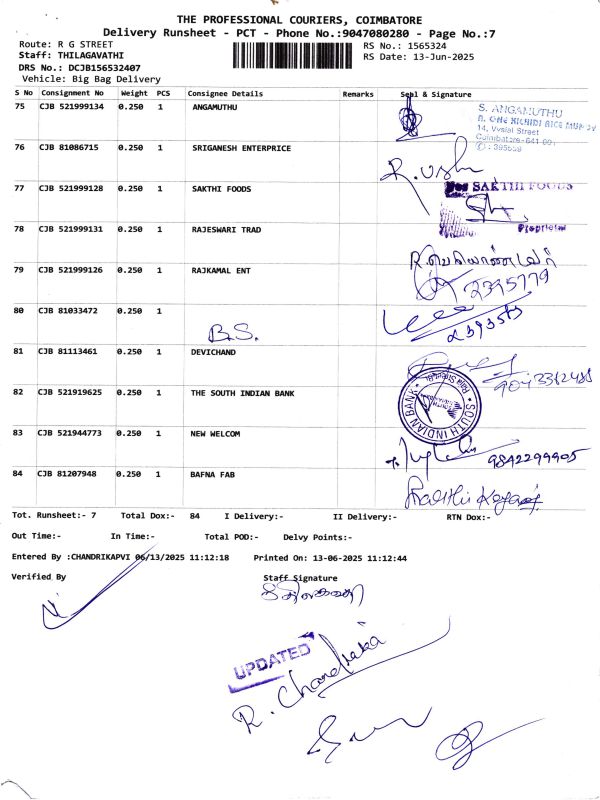 THE PROFESSIONAL COURIERS, COIMBATORE
Delivery Runsheet - PCT - Phone No.:9047080280 - Page No.:7
Route: R G STREET RS No.: 1565324
Staff: THILAGAVATHI RS Date: 13-Jun-2025
DRS No.: DCJB156532407
Vehicle: Big Bag Delivery
S No Consignment No Weight PCS Consignee Details Remarks Seal & Signature
75 CJB 521999134 0.250 1 ANGAMUTHU
S. ANGAMUTHU
14, Vysial Street
Coimbatore-641 001
76 CJB 81086715 0.250 1 SRIGANESH ENTERPRICE
R. Usha
77 CJB 521999128 0.250 1 SAKTHI FOODS
SAKTHI FOODS
Proprietor
78 CJB 521999131 0.250 1 RAJESWARI TRAD
79 CJB 521999126 0.250 1 RAJKAMAL ENT
2395779
80 CJB 81033472 0.250 1
B.S.
81 CJB 81113461 0.250 1 DEVICHAND
82 CJB 521919625 0.250 1 THE SOUTH INDIAN BANK
SOUTH INDIAN BANK
83 CJB 521944773 0.250 1 NEW WELCOM
9842299905
84 CJB 81207948 0.250 1 BAFNA FAB
Tot. Runsheet:- 7 Total Dox:- 84 I Delivery:- II Delivery:- RTN Dox:-
Out Time:- In Time:- Total POD:- Delvy Points:-
Entered By :CHANDRIKAPVI 06/13/2025 11:12:18 Printed On: 13-06-2025 11:12:44
Verified By Staff Signature
UPDATED
R. Chandrika